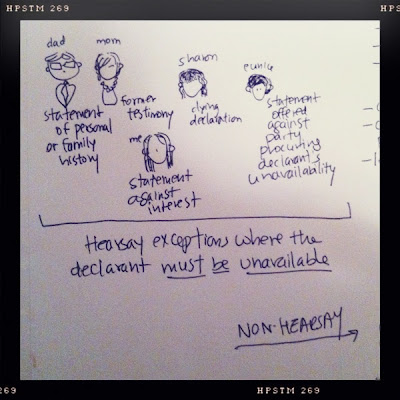 HPSTM 269
HPSTM 269
dad
mom
sharon
eunice
statement
of personal
or family
history
former
testimony
dying
declaration
statement
offered
against
party
procuring
declarant's
unavailability
me
statement
against
interest
Hearsay exceptions where the
declarant must be unavailable
NON-HEARSAY
269
HPSTM 269